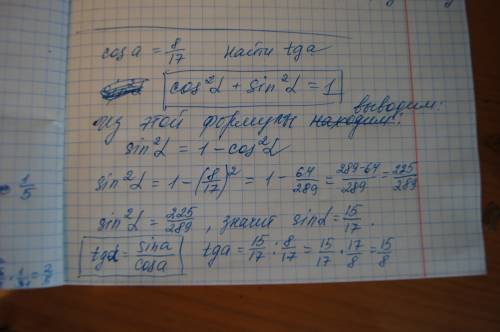 cos a = 8/17 найти tg a
cos²α + sin²α = 1
из этой формулы находим: выводим:
sin²α = 1 - cos²α
sin²α = 1 - (8/17)² = 1 - 64/289 = 289-64/289 = 225/289
sin²α = 225/289, значит sin α = 15/17.
tg α = sin a/cos a tg a = 15/17 : 8/17 = 15/17 · 17/8 = 15/8
1/5